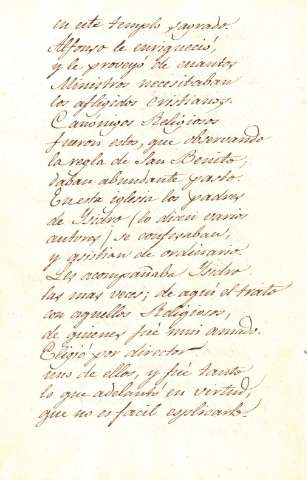 en este templo sagrado.
Alfonso le enriqueció,
y le proveyó de cuantos
Ministros necesitaban
los afligidos cristianos.
Canónigos Religiosos
fueron estos, que observando
la regla de San Benito,
daban abundante pasto.
En esta iglesia los padres
de Isidro (lo dicen varios
autores) se confesaban,
y asistian de ordinario.
Les acompañaba Isidro
las mas veces; de aquí el trato
con aquellos Religiosos,
de quienes fué mui amado.
Eligió por director
uno de ellos, y fué tanto
lo que adelantó en virtud,
que no es facil esplicarlo.